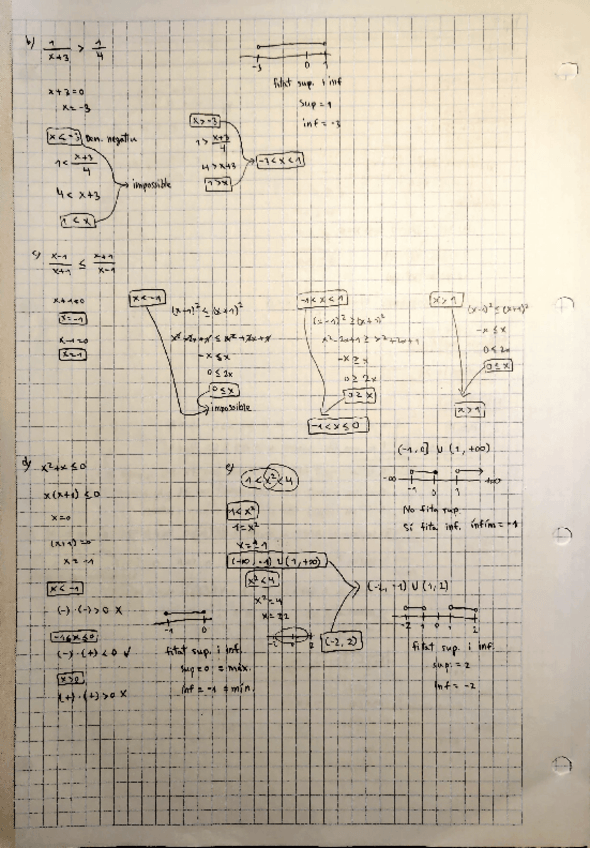 b) 1/(x+3) > 1/4
x+3=0
x=-3
x<-3 Den. negatiu
1 < (x+3)/4
4 < x+3
1 < x
impossible
x>-3
1 > (x+3)/4
4 > x+3
1 > x
-3<x<1
-3 0 1
fitat sup. i inf
sup = 1
inf = -3
c) (x-1)/(x+1) ≤ (x+1)/(x-1)
x+1=0
x=-1
x-1=0
x=1
x<-1
(x-1)² ≤ (x+1)²
x²-2x+1 ≤ x²+2x+1
-x ≤ x
0 ≤ 2x
0 ≤ x
impossible
-1<x<1
(x-1)² ≥ (x+1)²
x²-2x+1 ≥ x²+2x+1
-x ≥ x
0 ≥ 2x
0 ≥ x
-1<x≤0
x>1
(x-1)² ≤ (x+1)²
-x ≤ x
0 ≤ 2x
0 ≤ x
x>1
(-1,0] ∪ (1,+∞)
-∞ -1 0 1 +∞
No fita sup.
Sí fita inf. ínfim = -1
d) x²+x ≤ 0
x(x+1) ≤ 0
x=0
(x+1)=0
x=-1
x<-1
(-)·(-)>0 X
-1≤x≤0
(-)·(+)<0 √
x>0
(+)·(+)>0 X
-1 0
fitat sup. i inf.
sup=0 = màx.
inf = -1 = mín.
e) 1<x²<4
1<x²
1=x²
x=±1
(-∞,-1) ∪ (1,+∞)
x²<4
x²=4
x=±2
-2 2
(-2,2)
(-2,-1) ∪ (1,2)
-2 -1 0 1 2
fitat sup. i inf.
sup. = 2
inf = -2